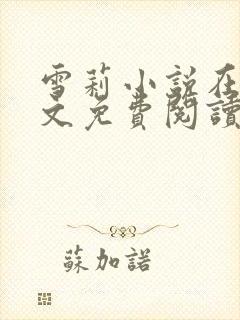 雪莉小説在
文免費閱讀
蘇加諾